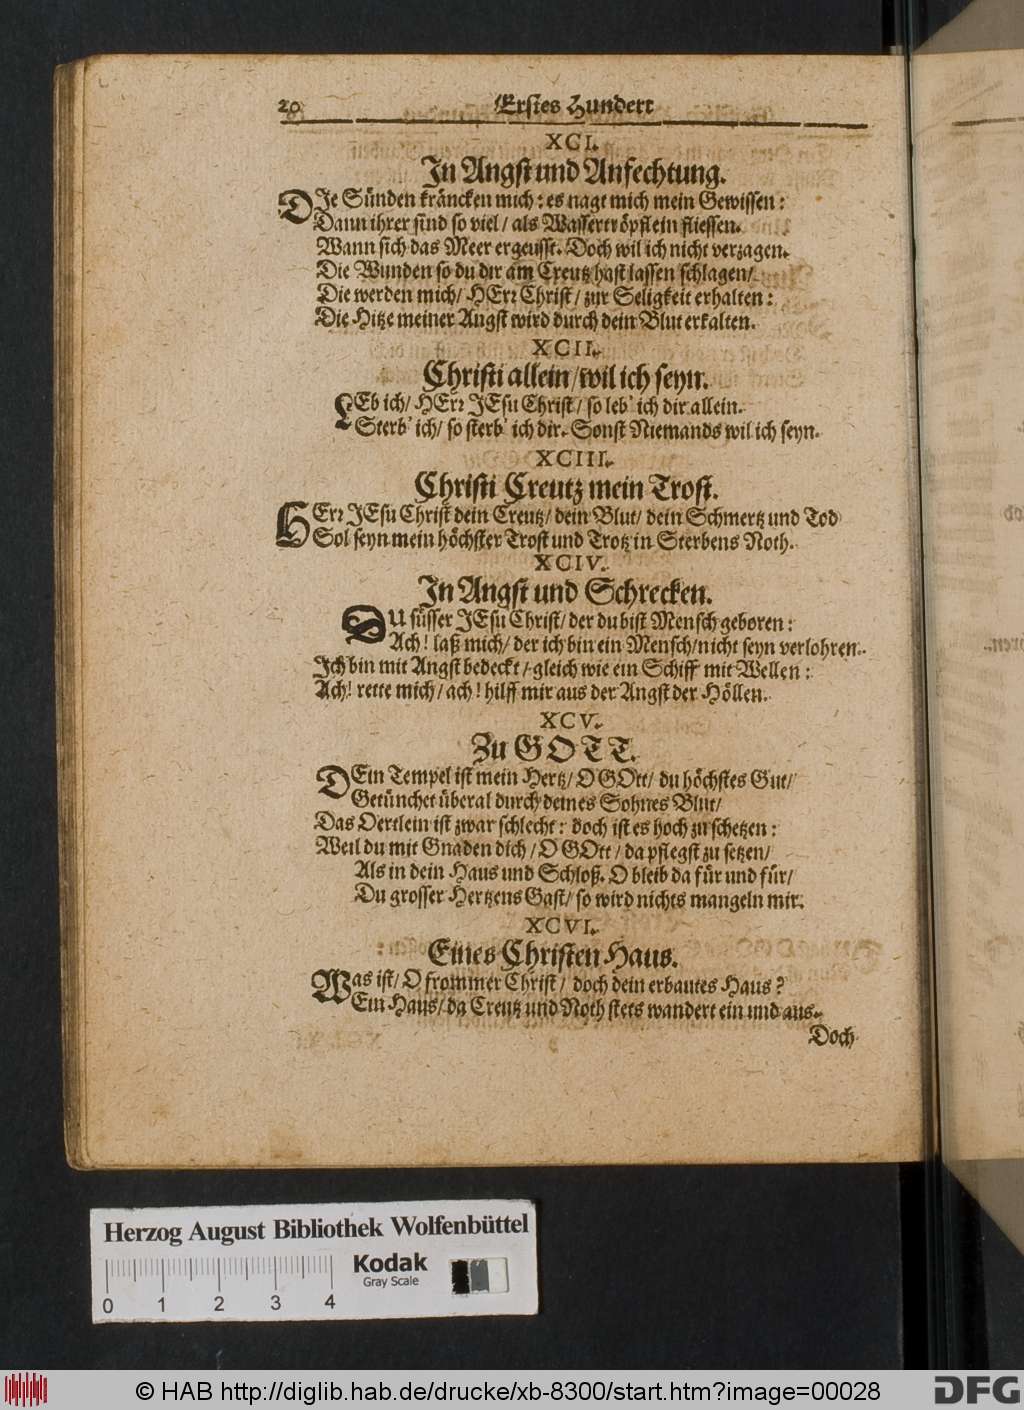 20 Erstes Hundert
XCI.
In Angst und Anfechtung.
DIe Sünden kräncken mich: es nagt mich mein Gewissen:
Dann ihrer sind so viel/ als Wassertröpflein fliessen.
Wann sich das Meer ergeusst. Doch wil ich nicht verzagen.
Die Wunden so du dir am Creutz hast lassen schlagen/
Die werden mich/ HErr Christ/ zur Seligkeit erhalten:
Die Hitze meiner Angst wird durch dein Blut erkalten.
XCII.
Christi allein/ wil ich seyn.
LEb ich/ HErr JEsu Christ/ so leb' ich dir allein.
Sterb' ich/ so sterb' ich dir. Sonst Niemands wil ich seyn.
XCIII.
Christi Creutz mein Trost.
HErr JEsu Christ dein Creutz/ dein Blut/ dein Schmertz und Tod
Sol seyn mein höchster Trost und Trotz in Sterbens Noth.
XCIV.
In Angst und Schrecken.
DU süsser JEsu Christ/ der du bist Mensch geboren:
Ach! laß mich/ der ich bin ein Mensch/ nicht seyn verlohren.
Ich bin mit Angst bedeckt/ gleich wie ein Schiff mit Wellen:
Ach! rette mich/ ach! hilff mir aus der Angst der Höllen.
XCV.
Zu GOTT.
DEin Tempel ist mein Hertz/ O GOtt/ du höchstes Gut/
Getünchet überal durch deines Sohnes Blut/
Das Oertlein ist zwar schlecht: doch ist es hoch zu schetzen:
Weil du mit Gnaden dich/ O GOtt/ da pflegst zu setzen/
Als in dein Haus und Schloß. O bleib da für und für/
Du grosser Hertzens Gast/ so wird nichts mangeln mir.
XCVI.
Eines Christen Haus.
Was ist/ O frommer Christ/ doch dein erbautes Haus?
Ein Haus/ da Creutz und Noth stets wandert ein und aus.
Doch
Herzog August Bibliothek Wolfenbüttel
Kodak
Gray Scale
0 1 2 3 4
© HAB http://diglib.hab.de/drucke/xb-8300/start.htm?image=00028
DFG